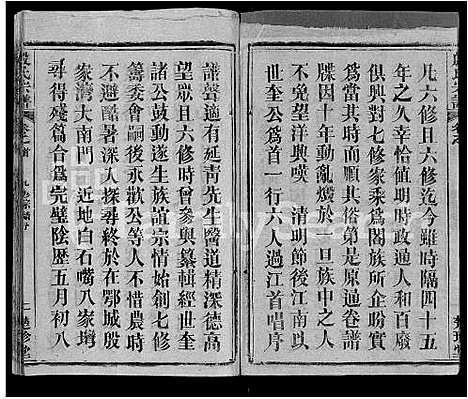 凡六修且六修迄今雖時隔四十五
年之久弁值明時政通人和百廢
俱興對七修家乘爲闔族所企盼實
爲當其時成其俗第是原通卷譜
牒因十年動亂燬於一旦族中之人
莫不望洋興嘆 清明節後江南以
世奎公爲首一行六人過江首唱序
譜聲適有延青先生醫道精深德高
望厚且六修時曾參與纂輯經世奎
諸公鼓動遂生族誼宗情始創七修
等委會嗣後承歡公等人不惜農時
不避酷暑深入探尋終於在鄂城殷
家灣大南門 近地白石嘴八家塆
尋得殘篇合爲完璧陰歷五月初八
殷氏宗譜
卷首